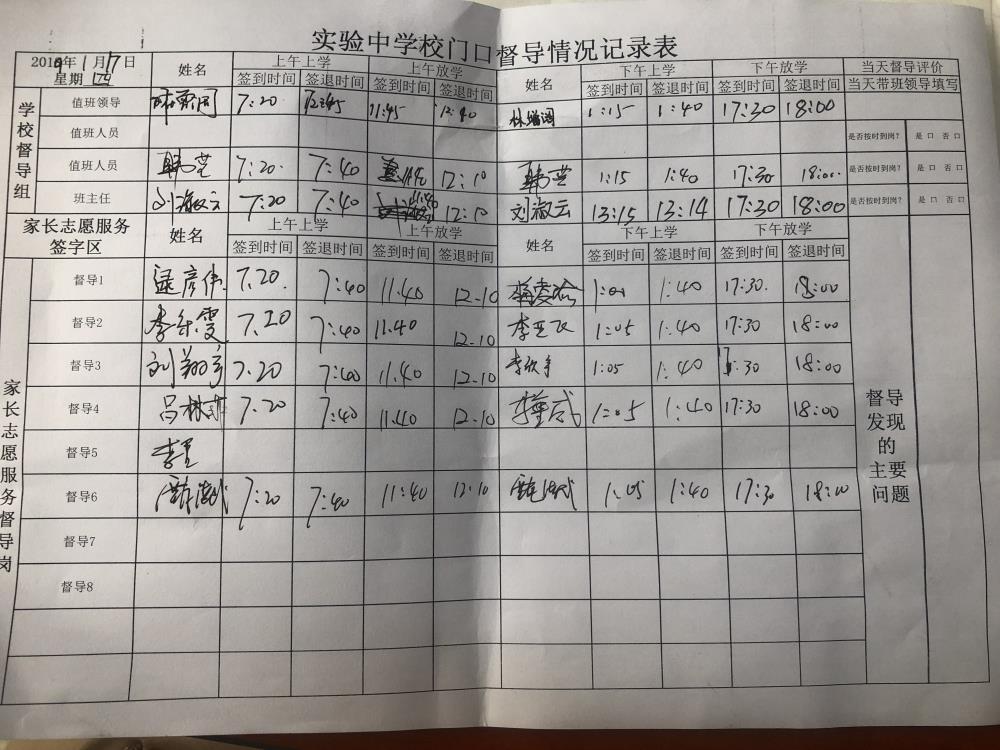 实验中学校门口督导情况记录表
年1月17日 星期四 姓名 上午上学 上午放学 姓名 下午上学 下午放学 当天督导评价
签到时间 签退时间 签到时间 签退时间 签到时间 签退时间 签到时间 签退时间 当天带班领导填写
学校督导组
值班领导 7:20 11:45 12:40 1:15 1:40 17:30 18:00
值班人员 是否按时到岗? 是 口 否 口
值班人员 韩莹 7:20 7:40 12:10 韩莹 1:15 1:40 17:30 18:00 是否按时到岗? 是 口 否 口
班主任 刘淑云 7:20 7:40 11:40 12:10 刘淑云 13:15 13:14 17:30 18:00 是否按时到岗? 是 口 否 口
家长志愿服务签字区 姓名 上午上学 上午放学 姓名 下午上学 下午放学
签到时间 签退时间 签到时间 签退时间 签到时间 签退时间 签到时间 签退时间
家长志愿服务督导岗
督导1 逯彦伟 7.20 7:40 11.40 12.10 1:40 17:30 18:00
督导2 7.20 7:40 11.40 12.10 1:05 1:40 17:30 18:00
督导3 刘翔宇 7.20 7:40 11.40 12.10 1:05 1:40 17:30 18:00
督导4 7.20 7:40 11.40 12.10 1:05 1:40 17:30 18:00
督导5
督导6 7:20 7:40 11:40 12.10 1:05 1:40 17:30 18:00
督导7
督导8
督导
发现
的
主要
问题